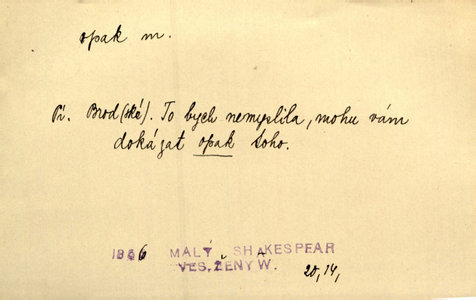 opak m.
Pí. Brod(ské). To bych nemyslila, mohu vám
dokázat opak toho.
1866 MALÝ SHAKESPEAR
VES. ŽENY W. 20, 14,